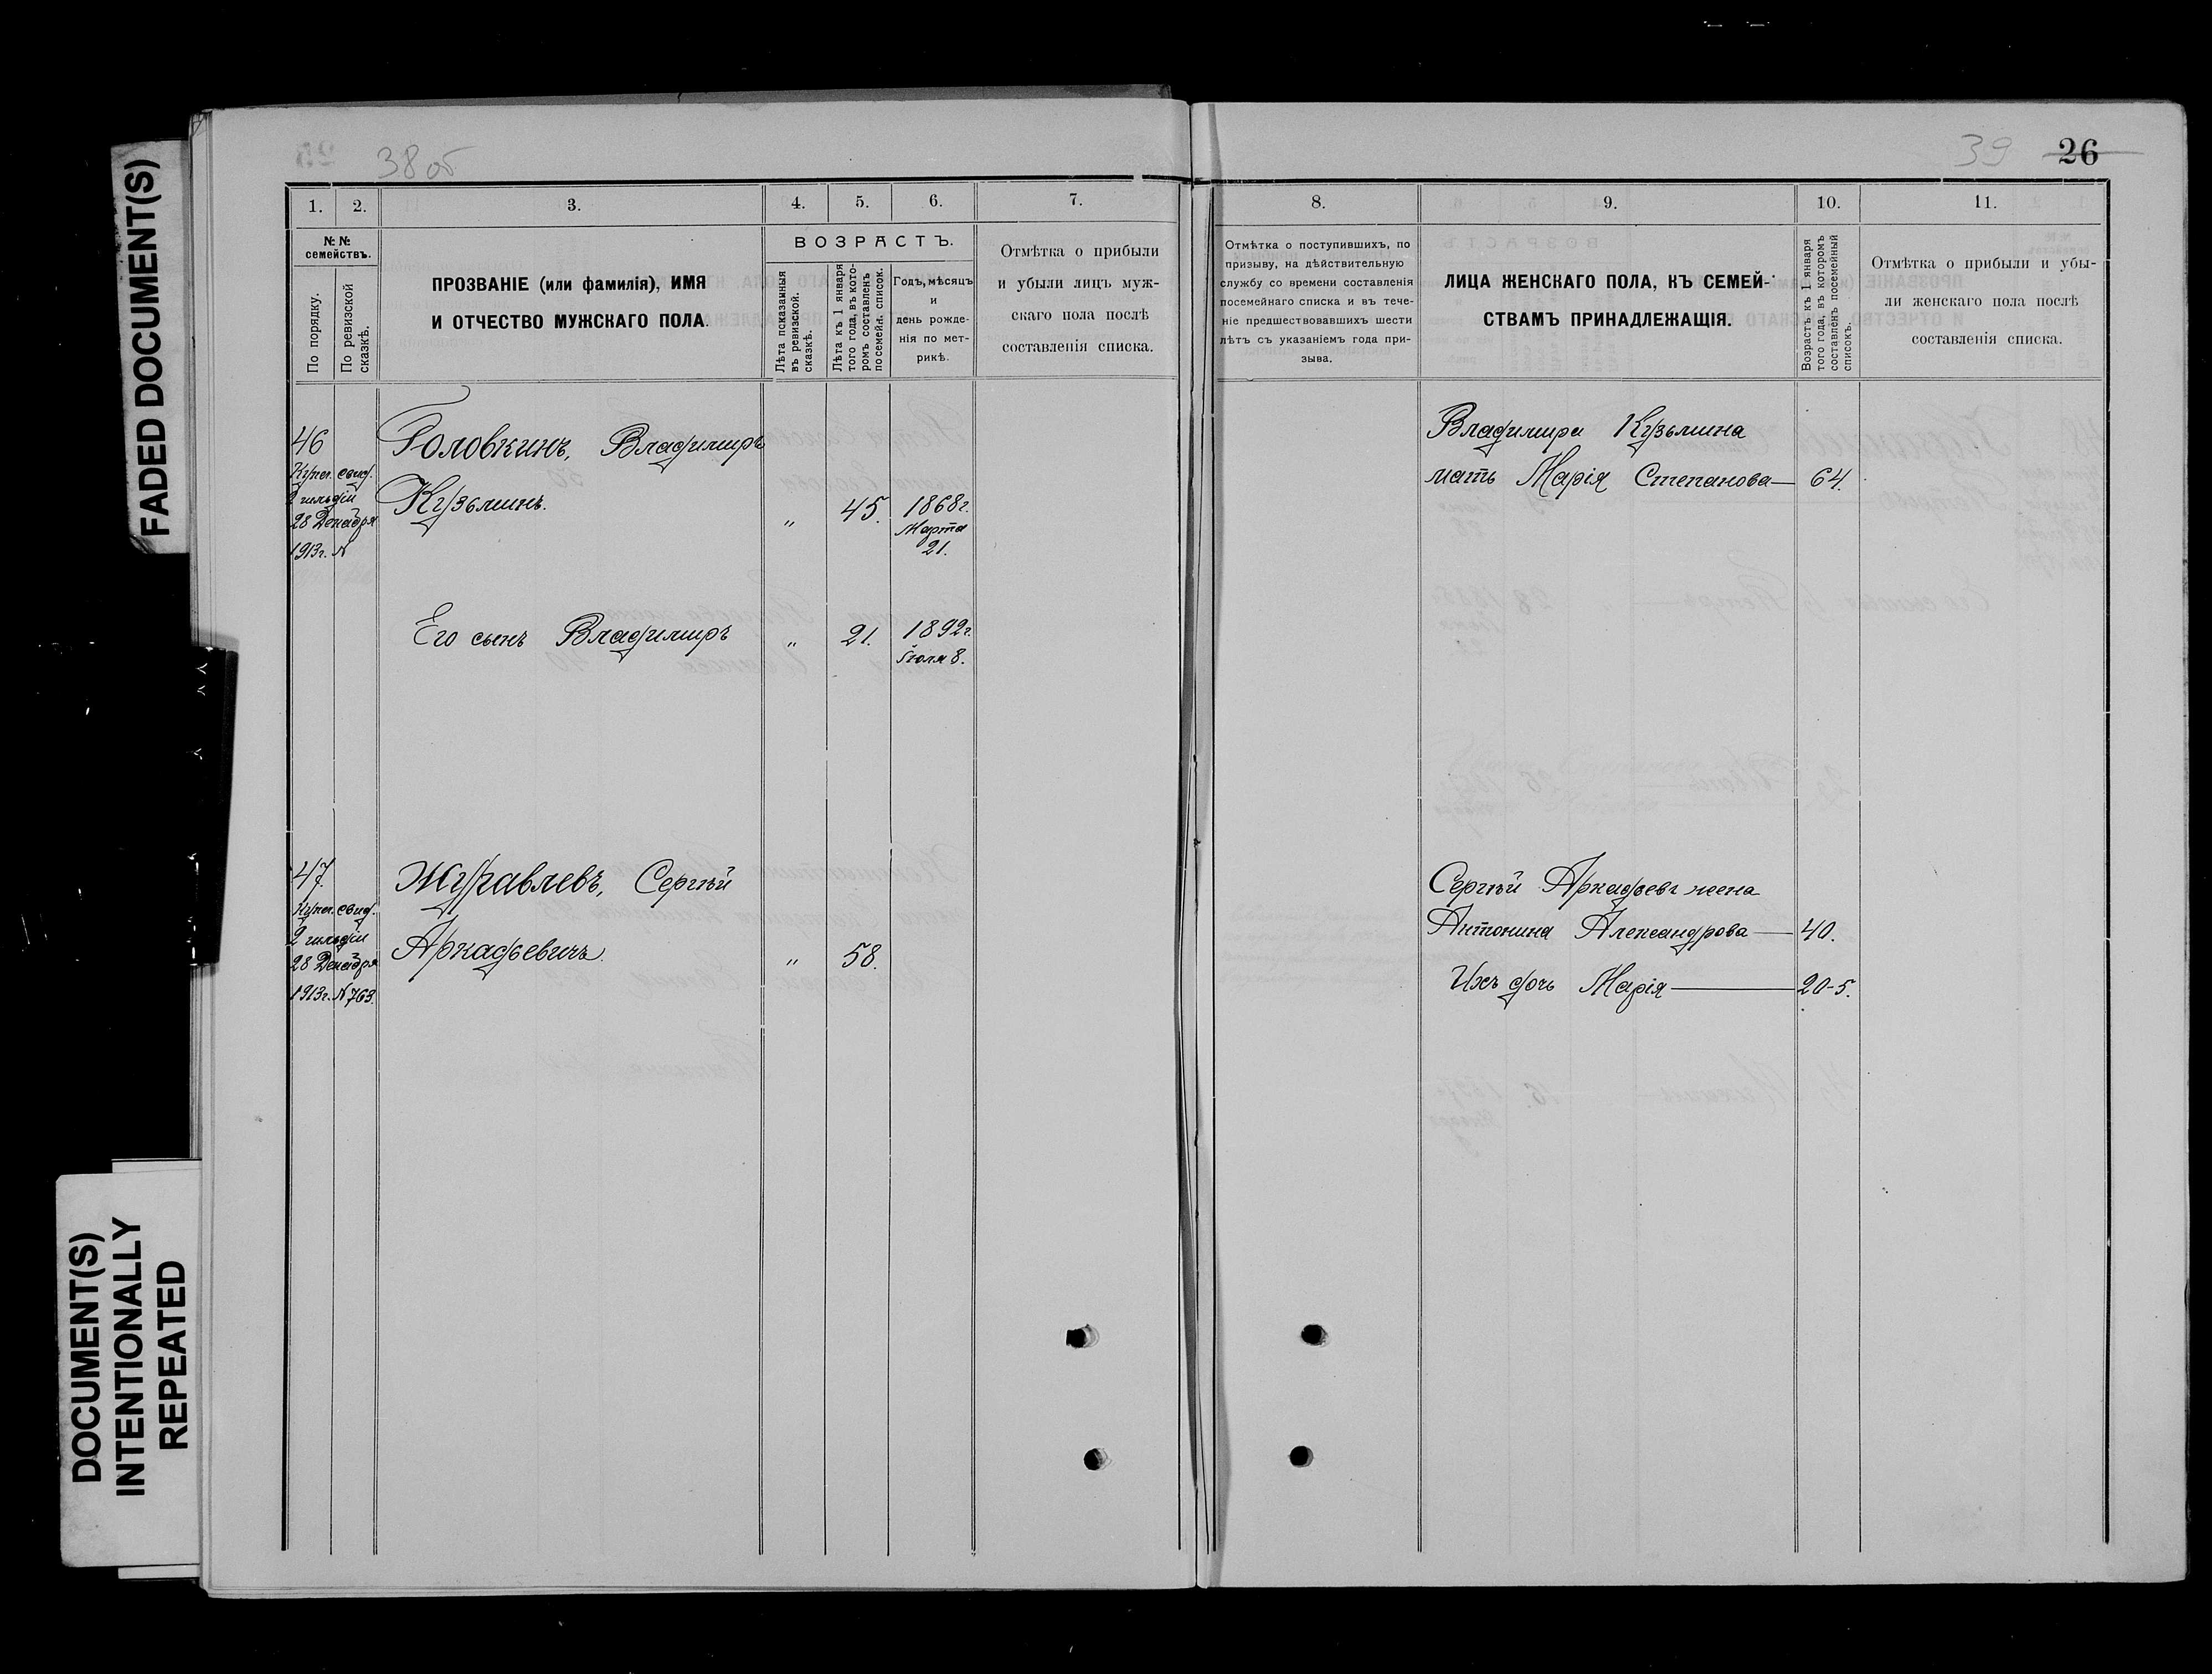 FADED DOCUMENT(S)
DOCUMENT(S)
INTENTIONALLY
REPEATED
38 об
1. 2. 3. 4. 5. 6. 7.
№ №
семействъ.
По порядку.
По ревизской
сказкѣ.
ПРОЗВАНІЕ (или фамилія), ИМЯ
И ОТЧЕСТВО МУЖСКАГО ПОЛА.
ВОЗРАСТЪ.
Лѣта показанныя
въ ревизской.
сказкѣ.
Лѣта къ 1 января
того года, въ кото-
ромъ составленъ
посемейн. список.
Годъ, мѣсяцъ
и
день рожде-
нія по мет-
рикѣ.
Отмѣтка о прибыли
и убыли лицъ муж-
скаго пола послѣ
составленія списка.
46
Купеч. свид.
2 гильдіи
28 Декабря
1913г. №
Головкинъ, Владимиръ
Кузьминъ. „ 45. 1868г.
Марта
21.
Его сынъ Владимиръ „ 21. 1892г.
Іюля 8.
47.
Купеч. свид.
2 гильдіи
28 Декабря
1913г. № 763.
Журавлевъ, Сергѣй
Аркадьевичъ. „ 58.
39 26
8. 9. 10. 11.
Отмѣтка о поступившихъ, по
призыву, на дѣйствительную
службу со времени составленія
посемейнаго списка и въ тече-
ніе предшествовавшихъ шести
лѣтъ съ указаніемъ года при-
зыва.
ЛИЦА ЖЕНСКАГО ПОЛА, КЪ СЕМЕЙ-
СТВАМЪ ПРИНАДЛЕЖАЩІЯ.
Возрастъ къ 1 января
того года, въ которомъ
составленъ посемейный
списокъ.
Отмѣтка о прибыли и убы-
ли женскаго пола послѣ
составленія списка.
Владимира Кузьмина
мать Марія Степанова— 64.
Сергѣй Аркадьевъ жена
Антонина Александрова — 40.
Ихъ дочь Марія — 20-5.